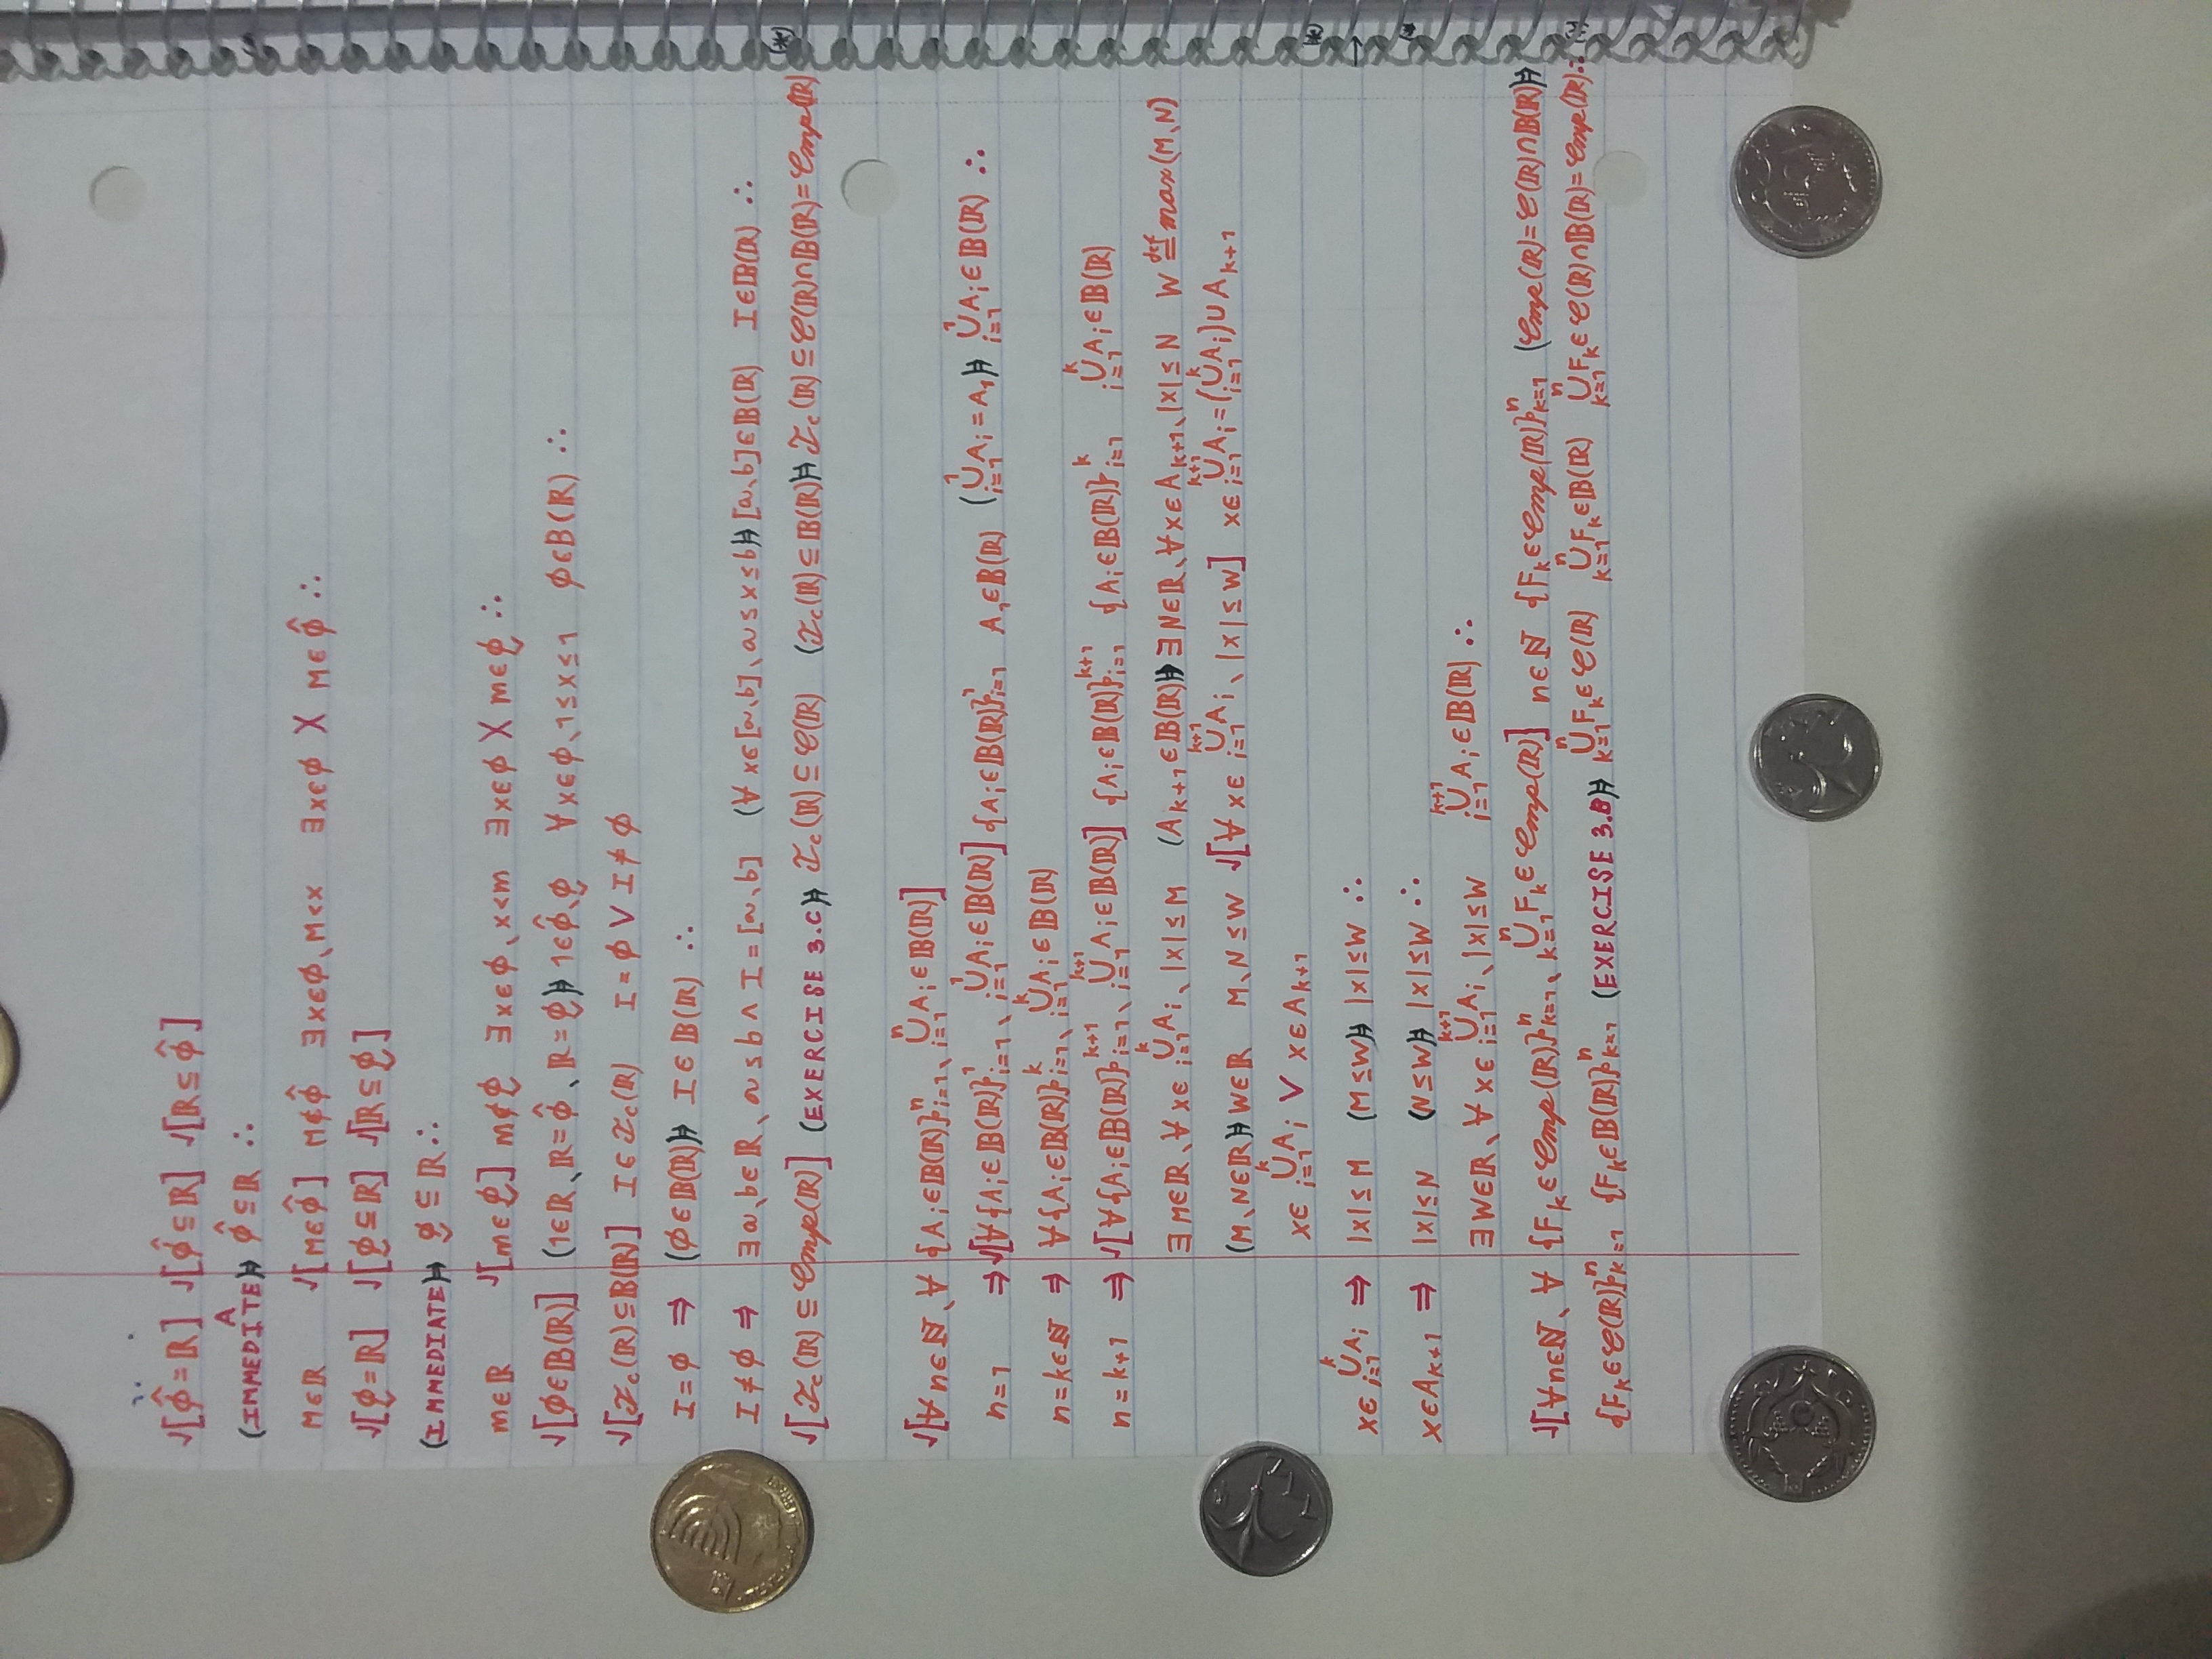 √[ϕ̂ = ℝ] √[ϕ̂ ⊆ ℝ] √[ℝ ⊆ ϕ̂]
A
(IMMEDITE)⊨ ϕ̂ ⊆ ℝ ∴
M∈ℝ √[M∈ϕ̂] M∉ϕ̂ ∃x∈ϕ、M<x ∃x∈ϕ X M∈ϕ̂ ∴
√[ϕ̬=ℝ] √[ϕ̬⊆ℝ] √[ℝ⊆ϕ̬]
(IMMEDIATE)⊨ ϕ̬ ⊆ ℝ ∴
m∈ℝ √[m∈ϕ̬] m∉ϕ̬ ∃x∈ϕ、x<m ∃x∈ϕ X m∈ϕ̬ ∴
√[ϕ∈𝔹(ℝ)] (1∈ℝ、ℝ=ϕ̂、ℝ=ϕ̬)⊨ 1∈ϕ̂、ϕ̬ ∀x∈ϕ、1≤x≤1 ϕ∈𝔹(ℝ) ∴
√[ℐc(ℝ)⊆𝔹(ℝ)] I∈ℐc(ℝ) I=ϕ ∨ I≠ϕ
I=ϕ ⇒ (ϕ∈𝔹(ℝ))⊨ I∈𝔹(ℝ) ∴
I≠ϕ ⇒ ∃a、b∈ℝ、a≤b ∧ I=[a、b] (∀x∈[a、b]、a≤x≤b)⊨ [a、b]∈𝔹(ℝ) I∈𝔹(ℝ) ∴
√[ℐc(ℝ) ⊆ 𝒞mp(ℝ)] (EXERCISE 3.C)⊨ ℐc(ℝ)⊆𝒞(ℝ) (ℐc(ℝ)⊆𝔹(ℝ))⊨ ℐc(ℝ)⊆𝒞(ℝ)∩𝔹(ℝ)=𝒞mp(ℝ)
√[∀n∈ℕ、∀{A_i∈𝔹(ℝ)}_{i=1}^n、⋃_{i=1}^n A_i∈𝔹(ℝ)]
n=1 ⇒ √[∀{A_i∈𝔹(ℝ)}_{i=1}^1、⋃_{i=1}^1 A_i∈𝔹(ℝ)] {A_i∈𝔹(ℝ)}_{i=1}^1 A_1∈𝔹(ℝ) (⋃_{i=1}^1 A_i=A_1)⊨ ⋃_{i=1}^1 A_i∈𝔹(ℝ) ∴
n=k∈ℕ ⇒ ∀{A_i∈𝔹(ℝ)}_{i=1}^k、⋃_{i=1}^k A_i∈𝔹(ℝ)
n=k+1 ⇒ √[∀{A_i∈𝔹(ℝ)}_{i=1}^{k+1}、⋃_{i=1}^{k+1} A_i∈𝔹(ℝ)] {A_i∈𝔹(ℝ)}_{i=1}^{k+1} {A_i∈𝔹(ℝ)}_{i=1}^k ⋃_{i=1}^k A_i∈𝔹(ℝ)
∃M∈ℝ、∀x∈⋃_{i=1}^k A_i、|x|≤M (A_{k+1}∈𝔹(ℝ))⊨ ∃N∈ℝ、∀x∈A_{k+1}、|x|≤N W ≝ max(M、N)
(M、N∈ℝ)⊨ W∈ℝ M、N≤W √[∀x∈⋃_{i=1}^{k+1} A_i、|x|≤W] x∈⋃_{i=1}^{k+1} A_i=(⋃_{i=1}^k A_i)∪A_{k+1}
x∈⋃_{i=1}^k A_i ∨ x∈A_{k+1}
x∈⋃_{i=1}^k A_i ⇒ |x|≤M (M≤W)⊨ |x|≤W ∴
x∈A_{k+1} ⇒ |x|≤N (N≤W)⊨ |x|≤W ∴
∃W∈ℝ、∀x∈⋃_{i=1}^{k+1} A_i、|x|≤W ⋃_{i=1}^{k+1} A_i∈𝔹(ℝ) ∴
√[∀n∈ℕ、∀{F_k∈𝒞mp(ℝ)}_{k=1}^n、⋃_{k=1}^n F_k∈𝒞mp(ℝ)] n∈ℕ {F_k∈𝒞mp(ℝ)}_{k=1}^n (𝒞mp(ℝ)=𝒞(ℝ)∩𝔹(ℝ))⊨
{F_k∈𝒞(ℝ)}_{k=1}^n {F_k∈𝔹(ℝ)}_{k=1}^n (EXERCISE 3.B)⊨ ⋃_{k=1}^n F_k∈𝒞(ℝ) ⋃_{k=1}^n F_k∈𝔹(ℝ) ⋃_{k=1}^n F_k∈𝒞(ℝ)∩𝔹(ℝ)=𝒞mp(ℝ)∴